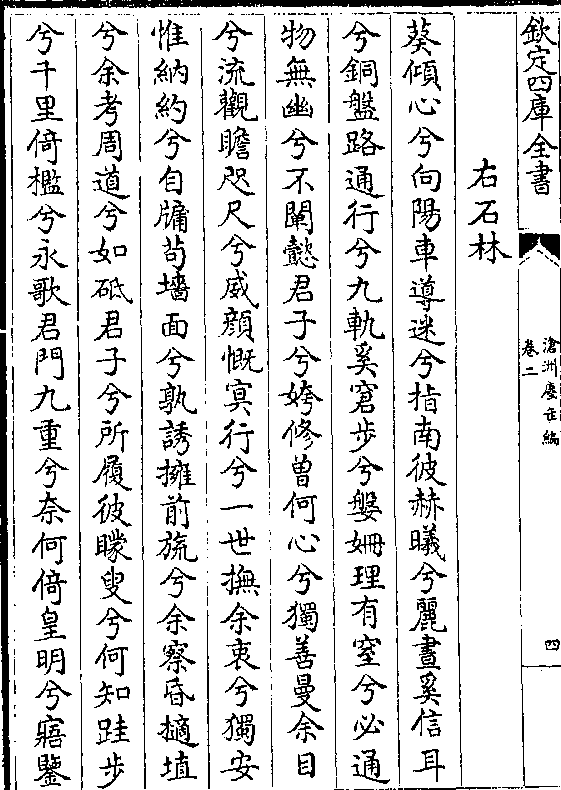 欽定四庫全書
滄洲塵缶編
卷二
四
右石林
葵傾心兮向陽車導迷兮指南彼赫曦兮麗晝奚信耳
兮銅盤路通行兮九軌奚窘步兮媻姍理有窒兮必通
物無幽兮不闡懿君子兮姱修曽何心兮獨善曼余目
兮流觀瞻咫尺兮威顔慨冥行兮一世撫余衷兮獨安
惟納約兮自牖茍墻面兮孰誘擁前旒兮余察昏擿埴
兮余考周道兮如砥君子兮所履彼矇叟兮何知跬步
兮千里倚檻兮永歌君門九重兮奈何倚皇明兮寤鑒